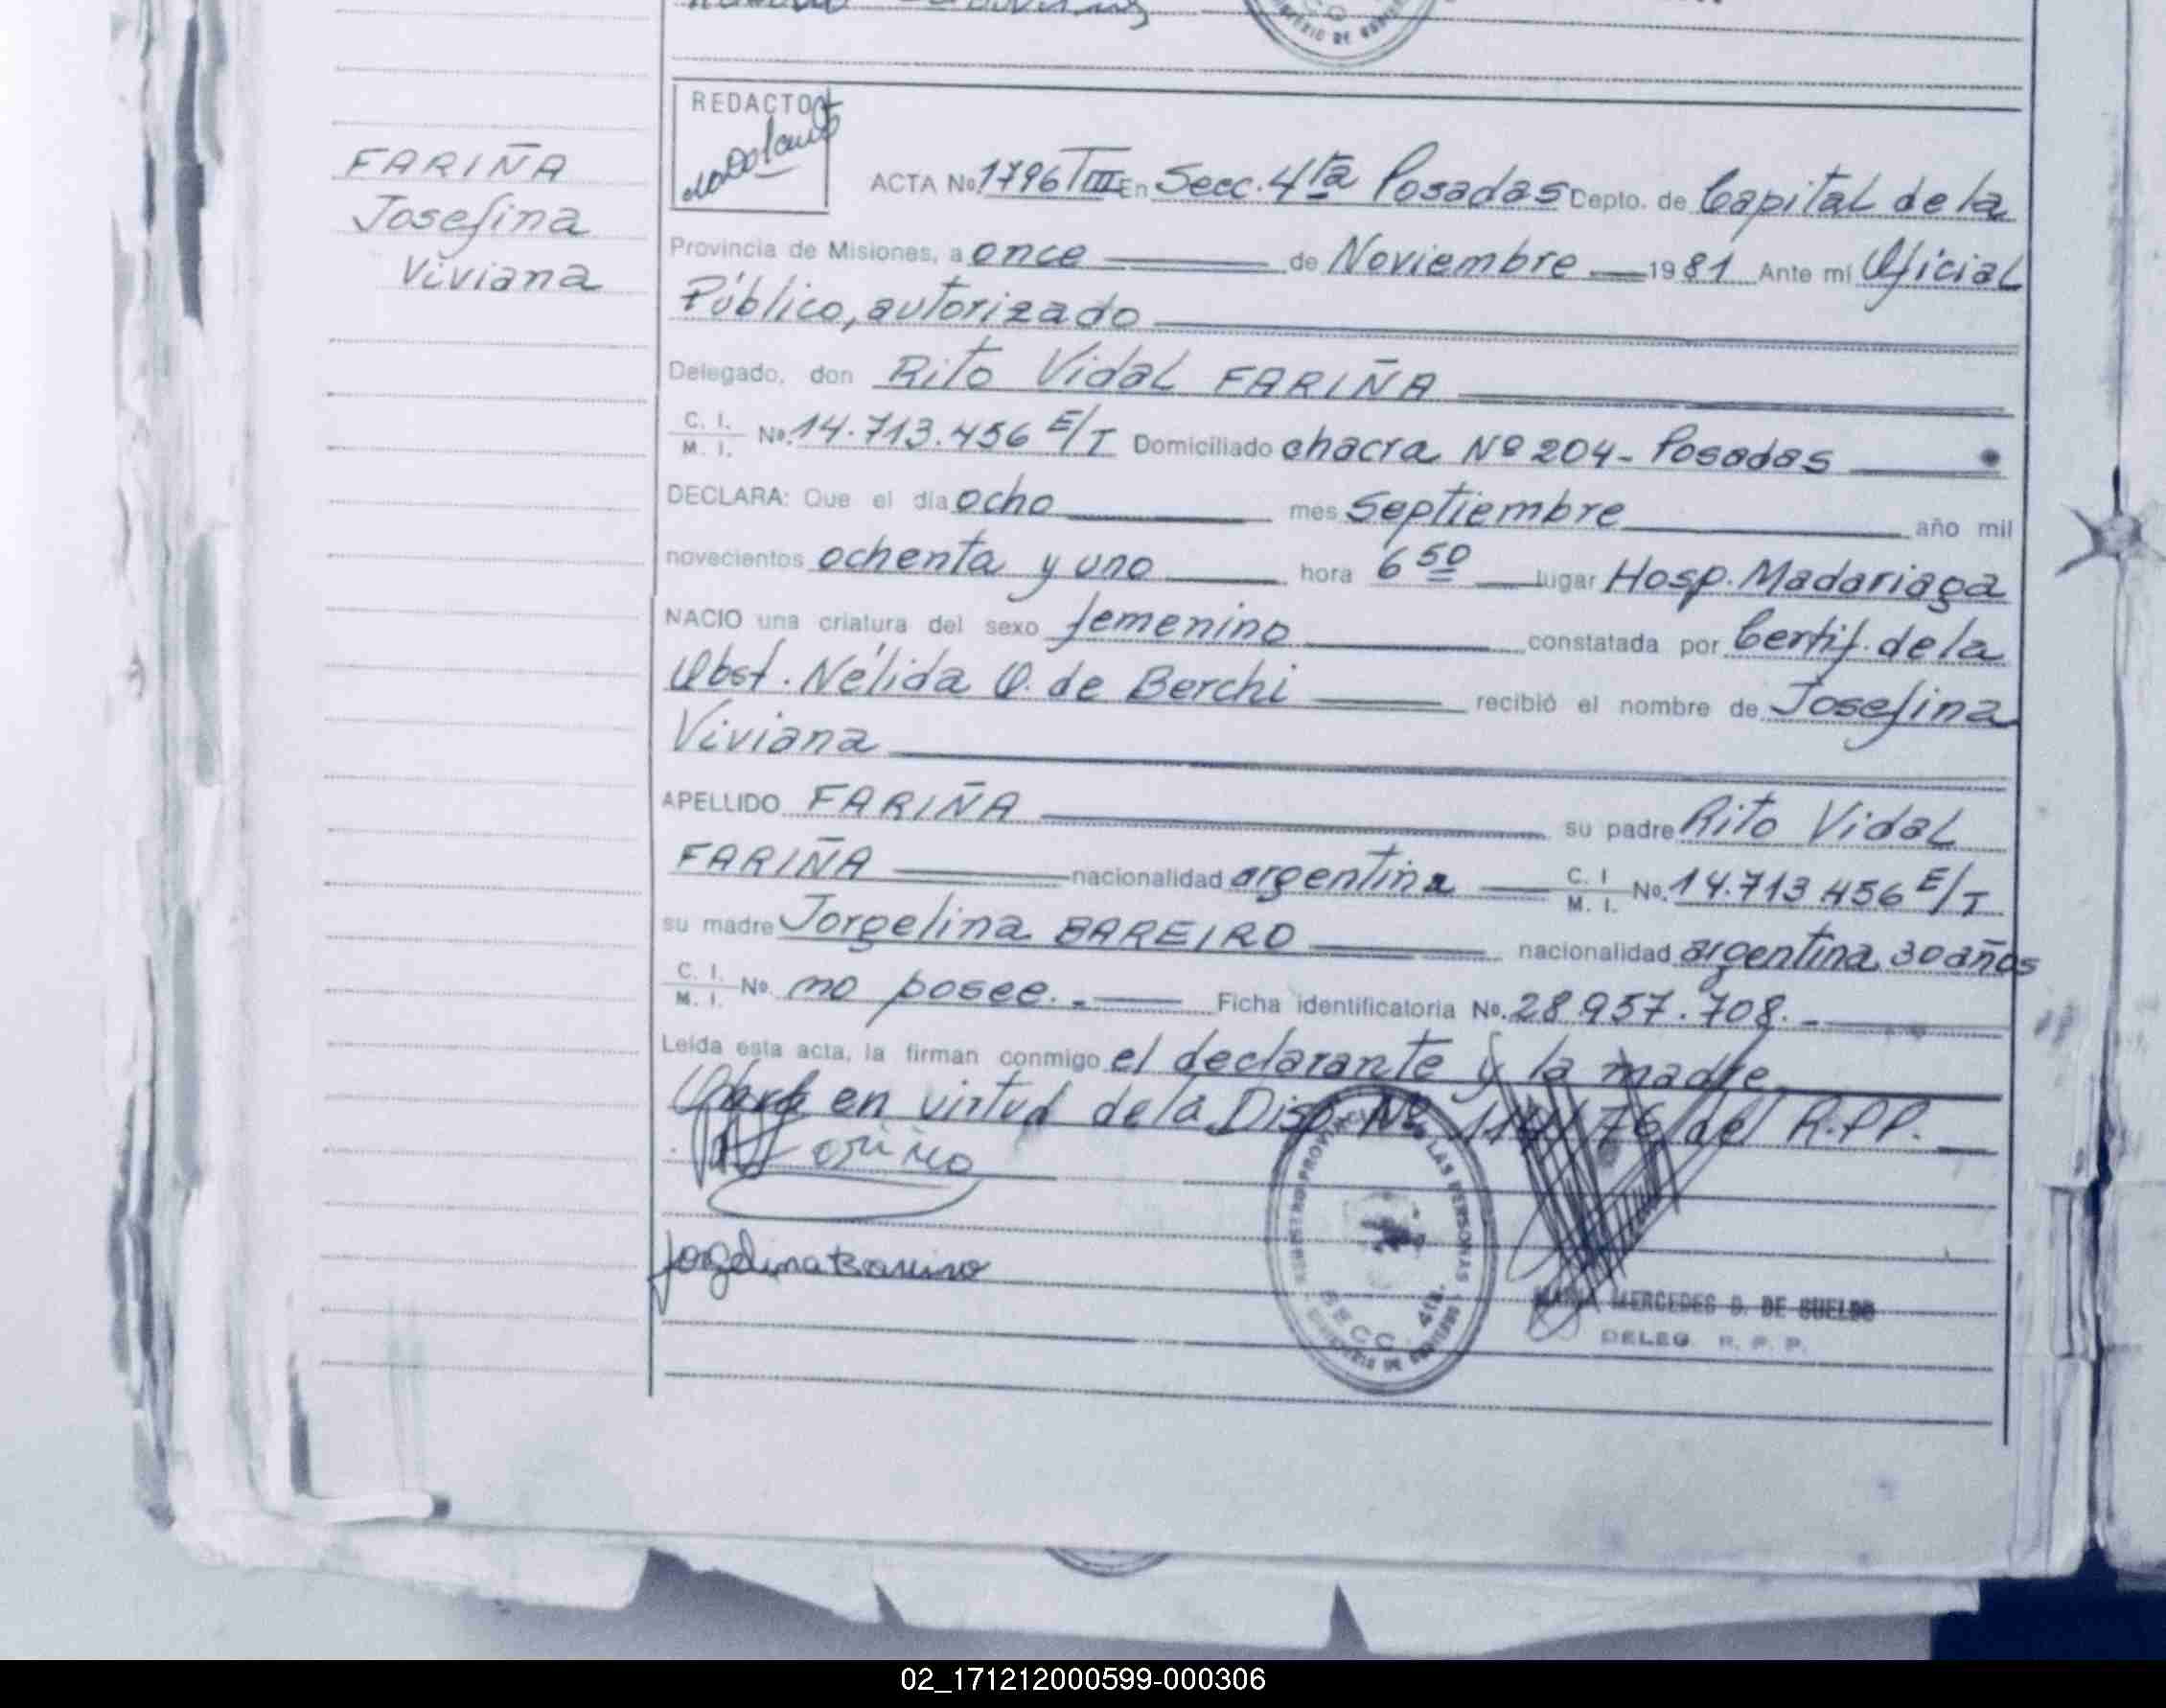 REDACTOR
FARIÑA
Josefina
Viviana
ACTA No 1796 TIII En Secc. 4ta Posadas Depto. de Capital de la
Provincia de Misiones, a once de Noviembre 1981 Ante mi Oficial
Público, autorizado
Delegado, don Rito Vidal FARIÑA
C. I. M. I. No. 14.713.456 E/T Domiciliado chacra Nº 204- Posadas
DECLARA: Que el día ocho mes Septiembre año mil
novecientos ochenta y uno hora 6 50 lugar Hosp. Madariaga
NACIO una criatura del sexo femenino constatada por Certif. de la
Obst. Nélida O. de Berchi recibió el nombre de Josefina
Viviana
APELLIDO FARIÑA su padre Rito Vidal
FARIÑA nacionalidad argentina C. I M. I. No. 14.713.456 E/T
su madre Jorgelina BAREIRO nacionalidad argentina 30 años
C. I. M. I. No. no posee.- Ficha identificatoria No. 28.957.708.-
Leída esta acta, la firman conmigo el declarante y la madre
en virtud de la Disp. Nº 114/76 del R.P.P.
Jorgelina Bareiro
SECC. 4ta.
MARIA MERCEDES B. DE SUELDO
DELEG. R. P. P.
02_171212000599-000306